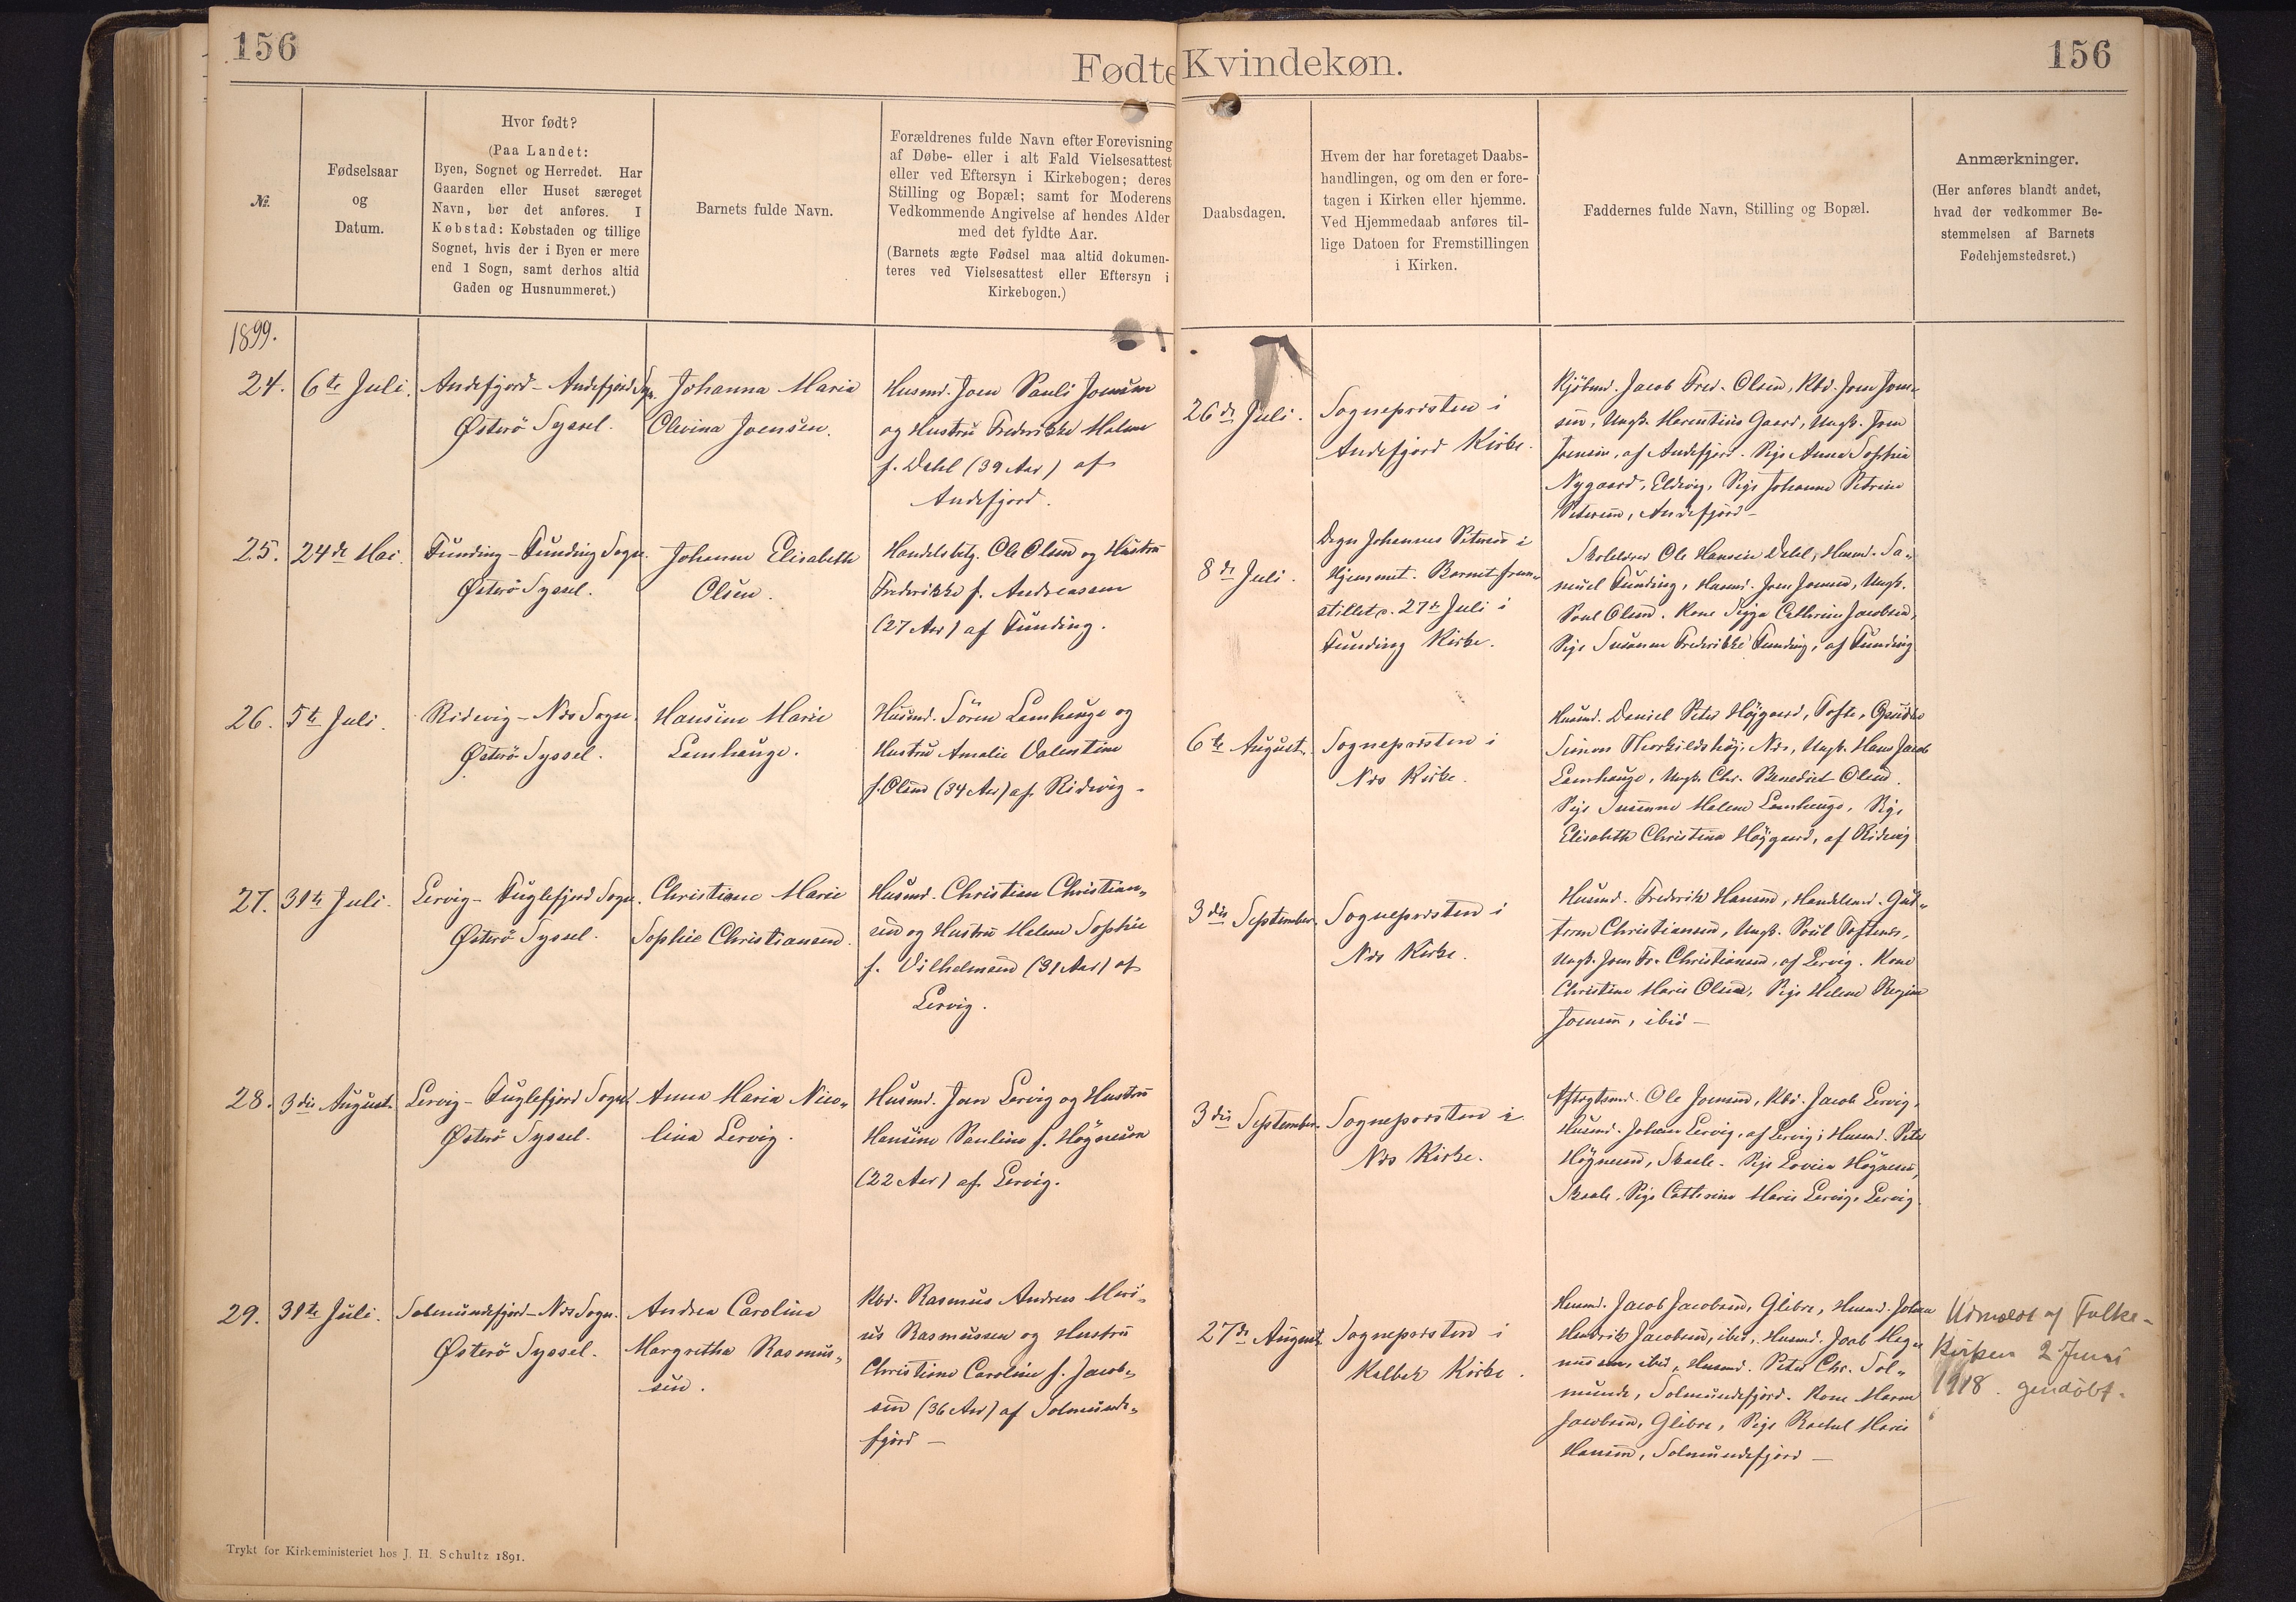 156
Fødte Kvindekøn.
156
№.
Fødselsaar
og
Datum.
Hvor født?
(Paa Landet:
Byen, Sognet og Herredet. Har
Gaarden eller Huset særeget
Navn, bør det anføres. I
Købstad: Købstaden og tillige
Sognet, hvis der i Byen er mere
end 1 Sogn, samt derhos altid
Gaden og Husnummeret.)
Barnets fulde Navn.
Forældrenes fulde Navn efter Forevisning
af Døbe- eller i alt Fald Vielsesattest
eller ved Eftersyn i Kirkebogen; deres
Stilling og Bopæl; samt for Moderens
Vedkommende Angivelse af hendes Alder
med det fyldte Aar.
(Barnets ægte Fødsel maa altid dokumen-
teres ved Vielsesattest eller Eftersyn i
Kirkebogen.)
Daabsdagen.
Hvem der har foretaget Daabs-
handlingen, og om den er fore-
tagen i Kirken eller hjemme.
Ved Hjemmedaab anføres til-
lige Datoen for Fremstillingen
i Kirken.
Faddernes fulde Navn, Stilling og Bopæl.
Anmærkninger.
(Her anføres blandt andet,
hvad der vedkommer Be-
stemmelsen af Barnets
Fødehjemstedsret.)
1899.
24.
6te Juli.
Andefjord - Andefjord Sogn.
Østerö Syssel.
Johanna Maria
Olevina Joensen.
Husmd. Joen Pauli Joensen
og Hustru Frederikke Malene
f. Dahl (39 Aar) af
Andefjord.
26de Juli.
Sognepræsten i
Andefjord Kirke.
Kjöbmd. Jacob Fred. Olsen, Kbd. Joen Joen-
sen, Ungk. Gaard, Ungk. Joen
Joensen, af Andefjord. Pige Anna Sophia
Nygaard, Eldvig, Pige Johanne Petrine
Petersen, Andefjord -
25.
24de Mai.
Funding - Funding Sogn.
Østerö Syssel.
Johanne Elisabeth
Olsen.
Handelsbetj. Ole Olsen og Hustru
Frederikke f. Andreassen
(27 Aar) af Funding.
8de Juli.
Degn Johannes Petersen i
Hjemmet. Barnet frem-
stillet d. 27de Juli i
Funding Kirke.
Skolelærer Ole Hansen Dahl, Husmd. Sa-
muel Funding, Husmd. Joen Joensen, Ungk.
Poul Olsen. Kone Sigga Cathrine Jacobsen,
Pige Susanne Frederikke Funding, af Funding
26.
5te Juli.
Ridevig - Næs Sogn.
Østerö Syssel.
Hansine Marie
Lamhauge.
Husmd. Sören Lamhauge og
Hustru Amalie Valentine
f. Olsen (34 Aar) af Ridevig -
6te August.
Sognepræsten i
Næs Kirke.
Husmd. Daniel Peter Höjgaard, Tofte,
Simon Thorkildshöj, Næs, Ungk. Hans Jacob
Lamhauge, Ungk. Chr. Benedict Olsen.
Pige Susanne Malene Lamhauge, Pige
Elisabeth Christina Höjgaard, af Ridevig
27.
31te Juli.
Lervig - Fuglefjord Sogn.
Østerö Syssel.
Christiane Marie
Sophie Christiansen.
Husmd. Christian Christian-
sen og Hustru Malene Sophie
f. Vilhelmsen (31 Aar) af
Lervig.
3die September.
Sognepræsten i
Næs Kirke.
Husmd. Frederik Hansen, Handelsmd. Gut-
torm Christiansen, Ungk. Poul Toftenæs,
Ungk. Joen Fr. Christiansen, af Lervig. Kone
Christine Marie Olsen, Pige Helene Regine
Joensen, ibid -
28.
3die August.
Lervig - Fuglefjord Sogn.
Østerö Syssel.
Anna Maria Nico-
lina Lervig.
Husmd. Joen Lervig og Hustru
Hansine Pauline f. Högnesen
(22 Aar) af Lervig.
3die September.
Sognepræsten i
Næs Kirke.
Aftægtsmd. Ole Joensen, Kbd. Jacob Lervig,
Husmd. Johan Lervig, af Lervig; Husmd. Peter
Högnesen, Skaale. Pige Lovisa Högnesen,
Skaale, Pige Catherine Marie Lervig, Lervig.
29.
31te Juli.
Solmundefjord - Næs Sogn.
Østerö Syssel.
Andrea Carolina
Margretha Rasmus-
sen.
Kbd. Rasmus Andreas Mari-
us Rasmussen og Hustru
Christiane Caroline f. Jacob-
sen (36 Aar) af Solmunde-
fjord -
27de August.
Sognepræsten i
Kalbak Kirke.
Husmd. Jacob Jacobsen, Glibre, Husmd. Johan
Hendrik Jacobsen, ibid, Husmd. Joab Mag-
nussen, ibid, Husmd. Peter Chr. Sol-
munde, Solmundefjord. Kone Maren
Jacobsen, Glibre, Pige Rachel Marie
Hansen, Solmundefjord -
Udmeldt af Folke-
kirken 2 Juni
1918. gendöbt.
Trykt for Kirkeministeriet hos J. H. Schultz 1891.